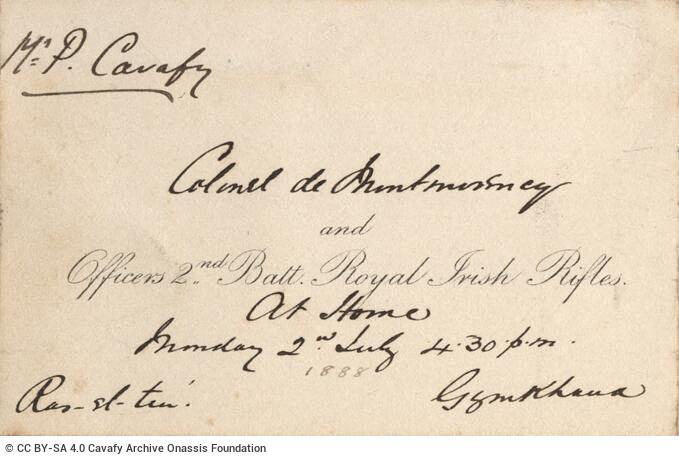 Mr P. Cavafy
Colonel de Montmorency
and
Officers 2nd Batt. Royal Irish Rifles.
At Home
Monday 2nd July 4.30 p.m.
1888
Ras-el-tin.
Gymkhana
© CC BY-SA 4.0 Cavafy Archive Onassis Foundation